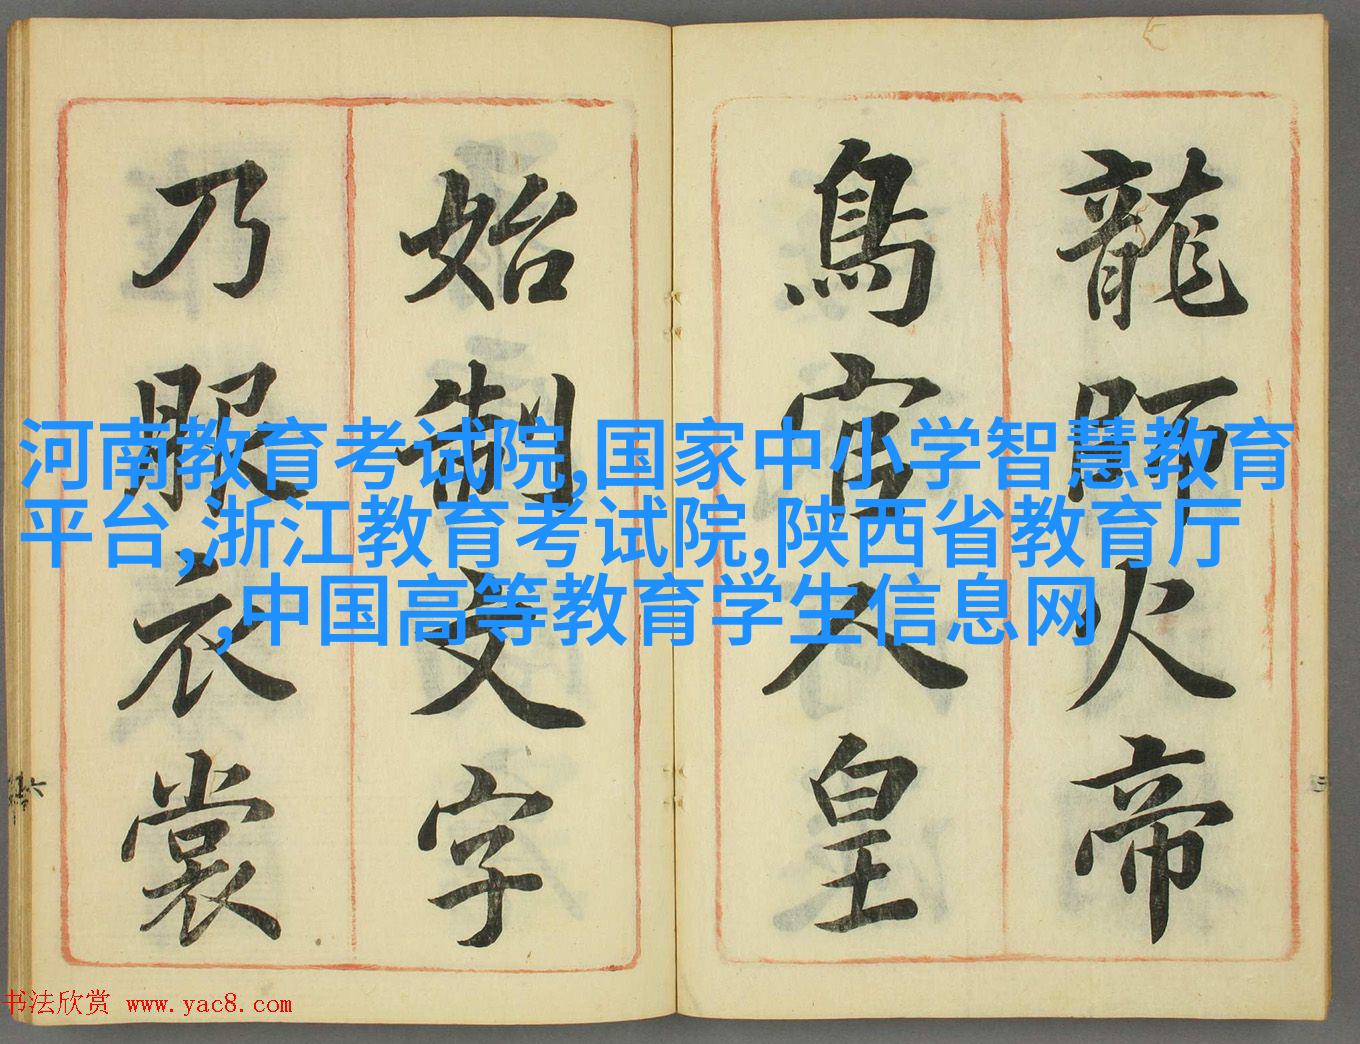 龍師火帝
鳥官人皇
始制文字
乃服衣裳
河南教育考试院,国家中小学智慧教育
平台,浙江教育考试院,陕西省教育厅
,中国高等教育学生信息网
书法欣赏 www.yac8.com